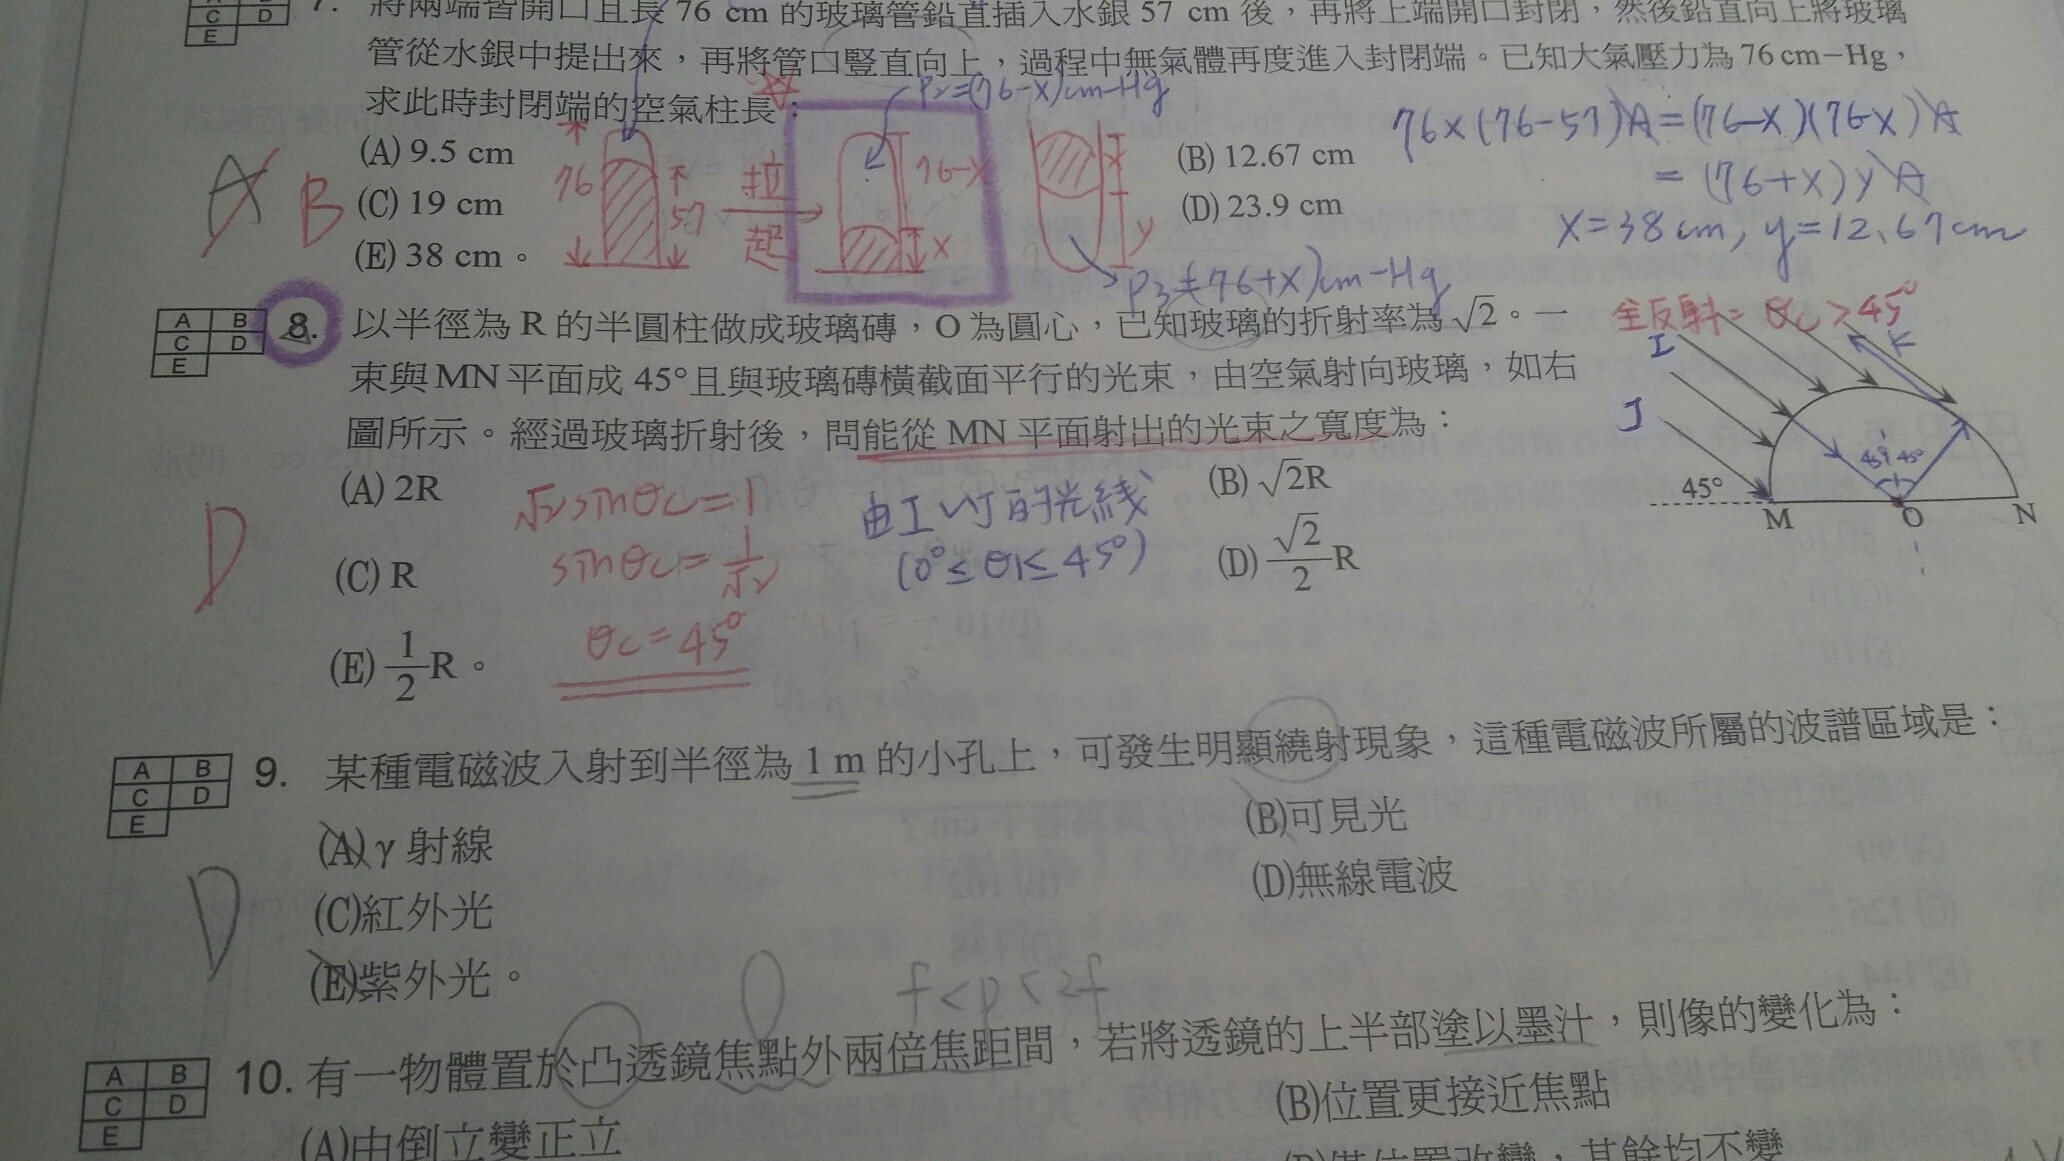 7. 將兩端皆開口且長 76 cm 的玻璃管鉛直插入水銀 57 cm 後，再將上端開口封閉，然後鉛直向上將玻璃
管從水銀中提出來，再將管口豎直向上，過程中無氣體再度進入封閉端。已知大氣壓力為 76 cm−Hg，
求此時封閉端的空氣柱長：
P₂=(76-x)cm-Hg
(A) 9.5 cm
(B) 12.67 cm
(C) 19 cm
(D) 23.9 cm
(E) 38 cm。
A B
76
57
拉起
76-x
x
x
y
P₃=(76+x)cm-Hg
76×(76-57)A=(76-x)(76-x)A
=(76+x)yA
x=38cm, y=12.67cm
A B
C D
E
8. 以半徑為 R 的半圓柱做成玻璃磚，O 為圓心，已知玻璃的折射率為 √2。一
束與 MN 平面成 45°且與玻璃磚橫截面平行的光束，由空氣射向玻璃，如右
圖所示。經過玻璃折射後，問能從 MN 平面射出的光束之寬度為：
(A) 2R
(B) √2R
(C) R
(D) √2/2 R
(E) 1/2 R。
D
√2 sinθc=1
sinθc=1/√2
θc=45°
由I~J的光線
(0°≤θ≤45°)
全反射= θc>45°
I
J
K
45° 45°
45°
M O N
A B
C D
E
9. 某種電磁波入射到半徑為 1 m 的小孔上，可發生明顯繞射現象，這種電磁波所屬的波譜區域是：
(A)γ 射線
(B)可見光
(C)紅外光
(D)無線電波
(E)紫外光。
D
f<p<2f
A B
C D
E
10. 有一物體置於凸透鏡焦點外兩倍焦距間，若將透鏡的上半部塗以墨汁，則像的變化為：
(A)由倒立變正立
(B)位置更接近焦點